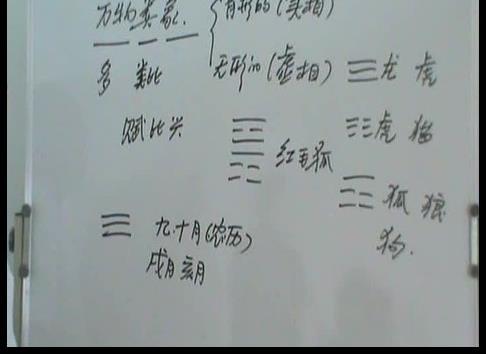 万物类象 有形的(实相)
多 类比 无形的(虚相) ☰龙 虎
赋比兴 ☷虎 猫
红毛狐
☶狐 狼
狗.
☰ 九.十月(农历)
戌月 亥月